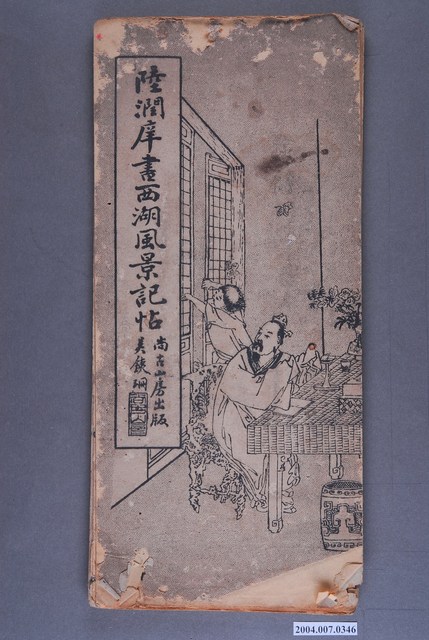 陸潤庠畫西湖風景記帖
尚古山房出版
2004.007.0346